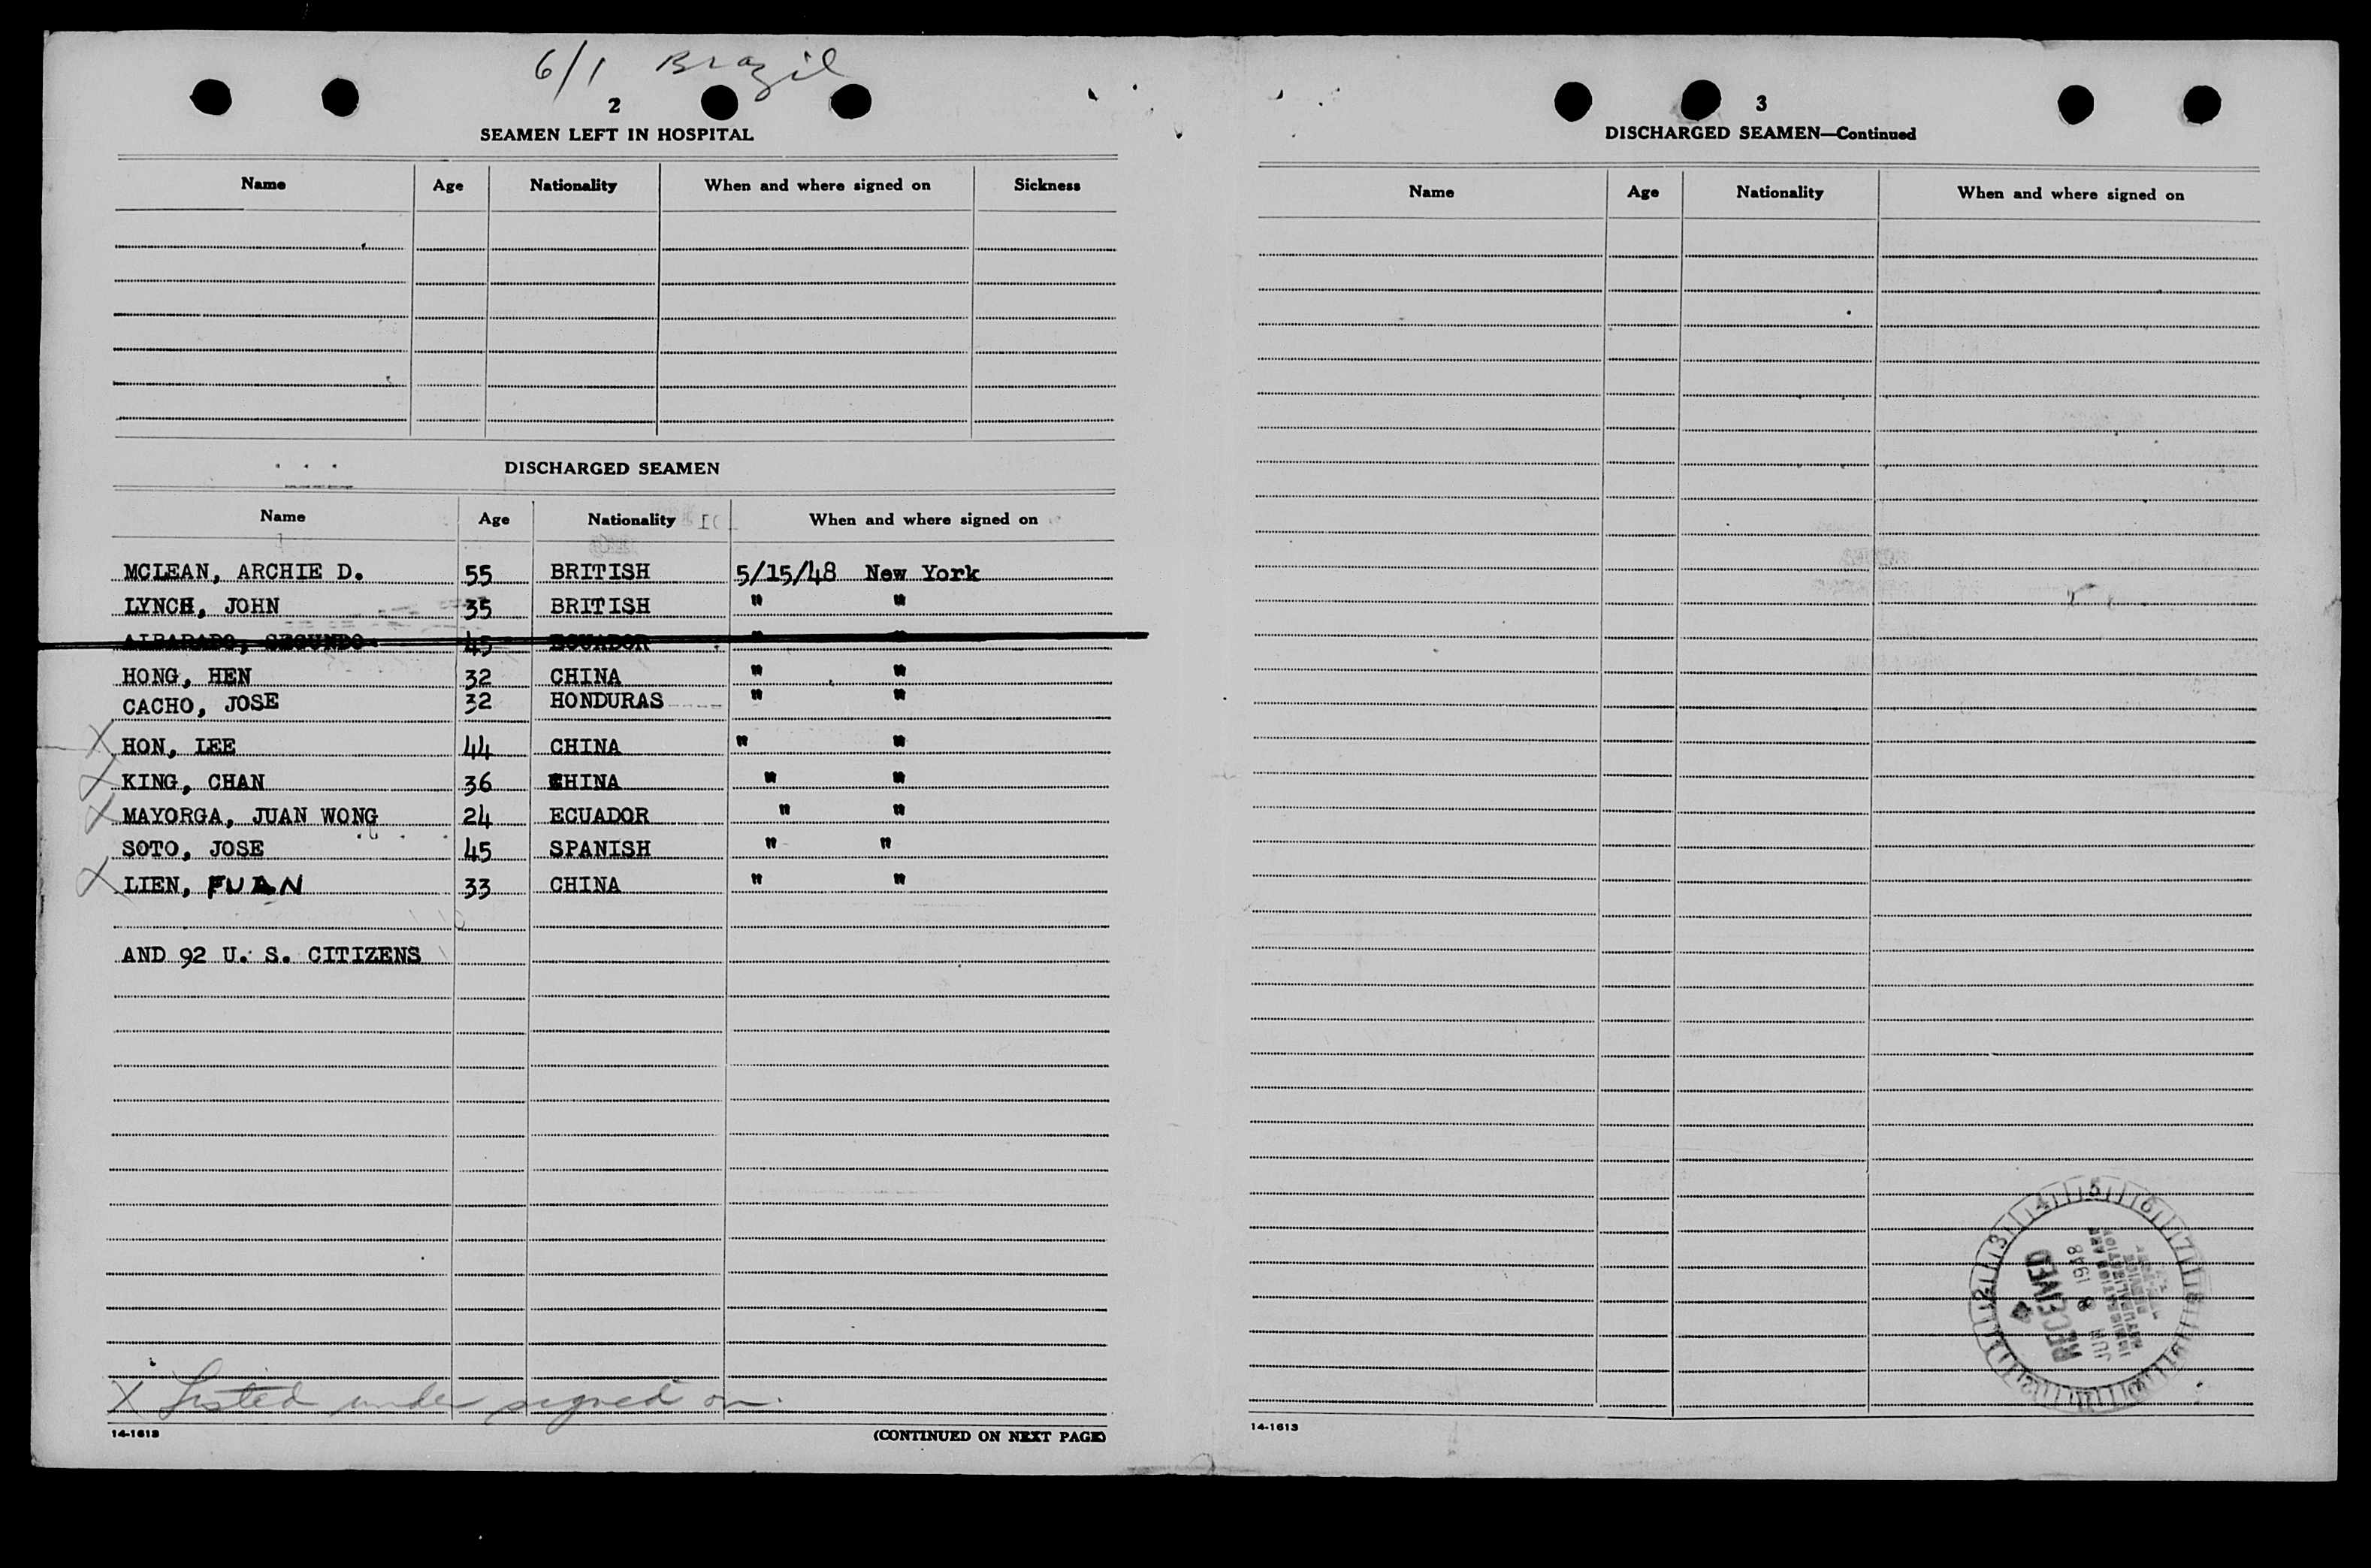 6/1 Brazil
2
SEAMEN LEFT IN HOSPITAL
Name Age Nationality When and where signed on Sickness
DISCHARGED SEAMEN
Name Age Nationality When and where signed on
MCLEAN, ARCHIE D. 55 BRITISH 5/15/48 New York
LYNCH, JOHN 35 BRITISH " "
ALBARADO, SEGUNDO 45 ECUADOR " "
HONG, HEN 32 CHINA " "
CACHO, JOSE 32 HONDURAS " "
X HON, LEE 44 CHINA " "
X KING, CHAN 36 CHINA " "
X MAYORGA, JUAN WONG 24 ECUADOR " "
SOTO, JOSE 45 SPANISH " "
X LIEN, FUAN 33 CHINA " "
AND 92 U. S. CITIZENS
X Listed under signed on.
14-1613 (CONTINUED ON NEXT PAGE)
3
DISCHARGED SEAMEN—Continued
Name Age Nationality When and where signed on
RECEIVED
JUN 8 1948
IMMIGRATION AND
NATURALIZATION
SERVICE
14-1613